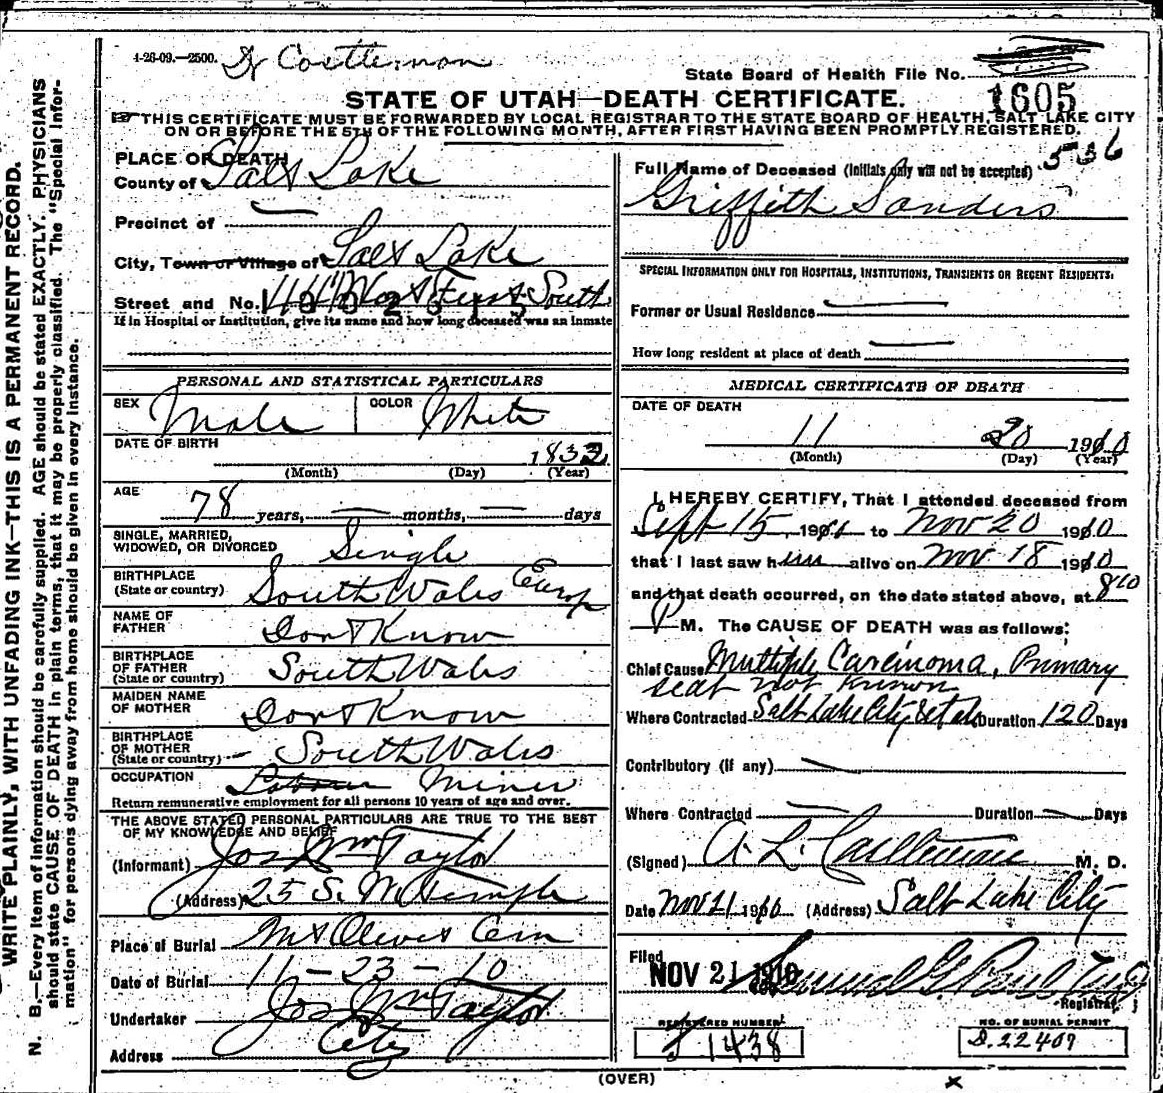 4-26-09.—2500. Dr Castleman
State Board of Health File No.
1605
STATE OF UTAH—DEATH CERTIFICATE.
THIS CERTIFICATE MUST BE FORWARDED BY LOCAL REGISTRAR TO THE STATE BOARD OF HEALTH, SALT LAKE CITY
ON OR BEFORE THE 5TH OF THE FOLLOWING MONTH, AFTER FIRST HAVING BEEN PROMPTLY REGISTERED.
WRITE PLAINLY, WITH UNFADING INK—THIS IS A PERMANENT RECORD.
N. B.—Every item of information should be carefully supplied. AGE should be stated EXACTLY. PHYSICIANS
should state CAUSE OF DEATH in plain terms, that it may be properly classified. The "Special Infor-
mation" for persons dying away from home should be given in every instance.
PLACE OF DEATH
County of Salt Lake
Precinct of —
City, Town or Village of Salt Lake
Street and No. West First South
If in Hospital or Institution, give its name and how long deceased was an inmate
PERSONAL AND STATISTICAL PARTICULARS
SEX Male COLOR White
DATE OF BIRTH
1832
(Month) (Day) (Year)
AGE
78 years, — months, — days
SINGLE, MARRIED,
WIDOWED, OR DIVORCED Single
BIRTHPLACE
(State or country) South Wales Europ
NAME OF
FATHER Dont Know
BIRTHPLACE
OF FATHER
(State or country) South Wales
MAIDEN NAME
OF MOTHER Dont Know
BIRTHPLACE
OF MOTHER
(State or country) — South Wales
OCCUPATION Miner
Return remunerative employment for all persons 10 years of age and over.
THE ABOVE STATED PERSONAL PARTICULARS ARE TRUE TO THE BEST
OF MY KNOWLEDGE AND BELIEF
(Informant) Jos Wm Taylor
(Address) 25 S. W Temple
Place of Burial Mt Olivet Cem
Date of Burial 11-23-10
Undertaker Jos Wm Taylor
Address City
536
Full Name of Deceased (Initials only will not be accepted)
Griffith Sanders
SPECIAL INFORMATION ONLY FOR HOSPITALS, INSTITUTIONS, TRANSIENTS OR RECENT RESIDENTS.
Former or Usual Residence —
How long resident at place of death —
MEDICAL CERTIFICATE OF DEATH
DATE OF DEATH
11 20 1910
(Month) (Day) (Year)
I HEREBY CERTIFY, That I attended deceased from
Sept 15, 1910 to Nov 20 1910
that I last saw him alive on Nov 18 1910
and that death occurred, on the date stated above, at 8 10
P M. The CAUSE OF DEATH was as follows:
Chief Cause Multiple Carcinoma, Primary
seat not known
Where Contracted Salt Lake City Utah Duration 120 Days
Contributory (if any) —
Where Contracted — Duration — Days
(Signed) A. L. Castleman M. D.
Date Nov 21 1910 (Address) Salt Lake City
Filed
NOV 21 1910
Registrar
REGISTERED NUMBER
1438
NO. OF BURIAL PERMIT
D. 22409
(OVER)
x